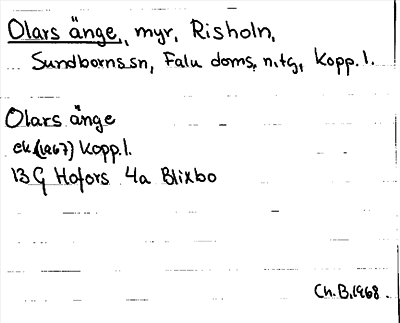 Olars änge, myr, Risholn,
Sundborns sn, Falu doms. n. tg, Kopp. l.
Olars änge
ek. (1967) Kopp. l.
13 G Hofors 4a Blixbo
Ch. B. 1968.